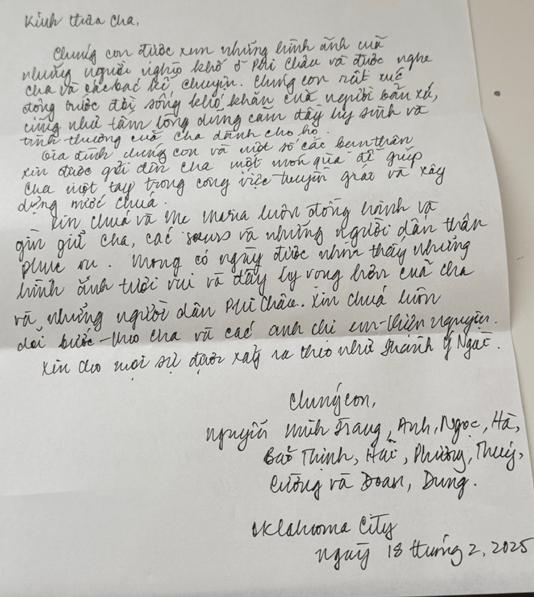 Kính thưa Cha,
Chúng con được xem những hình ảnh của
những người nghèo khổ ở Phi Châu và được nghe
cha và các bác kể chuyện. Chúng con rất xúc
động trước đời sống khó khăn của người bản xứ,
cũng như tấm lòng dũng cảm đầy hy sinh và
tình thương của Cha dành cho họ.
Gia đình chúng con và một số các bạn thân
xin được gửi đến Cha một món quà để giúp
Cha một tay trong công việc truyền giáo và xây
dựng nước Chúa.
Xin Chúa và Mẹ Maria luôn đồng hành và
gìn giữ Cha, các sơ và những người dân thân
phục vụ. Mong có ngày được nhìn thấy những
hình ảnh tươi vui và đầy hy vọng hơn của cha
và những người dân Phi Châu. Xin Chúa luôn
dõi bước theo Cha và các anh chị em thiện nguyện.
Xin cho mọi sự được xảy ra theo như thánh ý Ngài.
Chúng con,
Nguyễn Minh Trang, Anh, Ngọc, Hà,
Bảo Thịnh, Hải, Phường, Thúy,
Cường và Đoan, Dung.
Oklahoma City
ngày 18 tháng 2, 2025